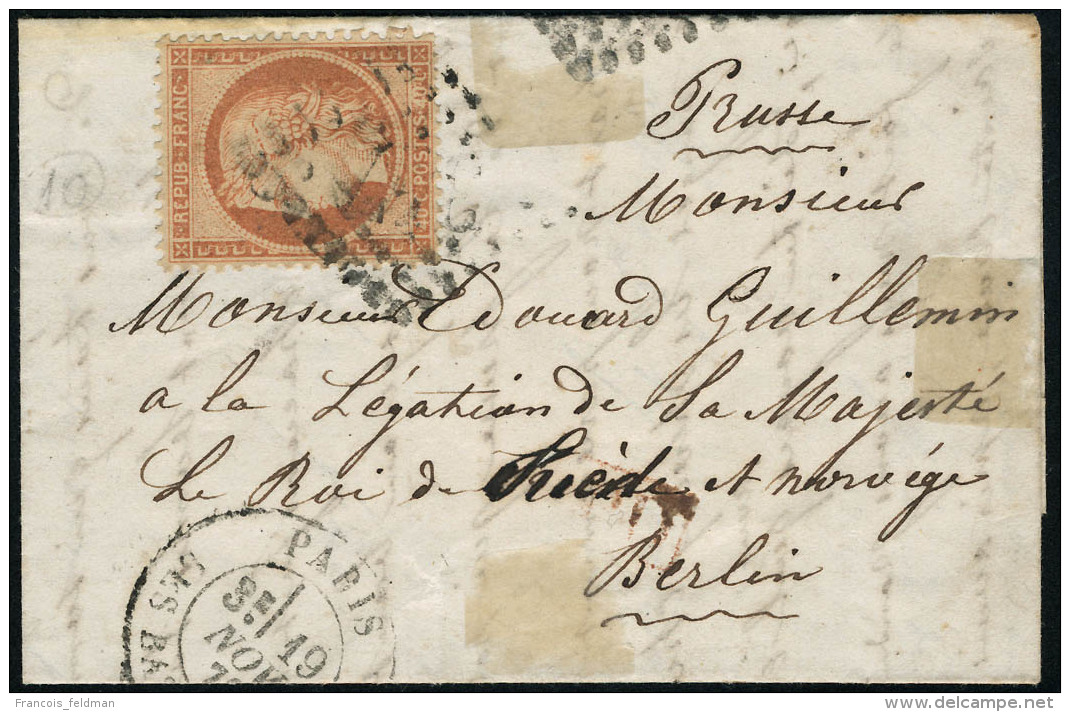 REPUB. FRANC.
POSTES
10
Prusse
Monsieur
Monsieur Edouard Guillemin
a la Légation de Sa Majesté
Le Roi de Suède et norvége
Berlin
PARIS
3E 19
NOV
Francois_feldman
www.delcampe.net